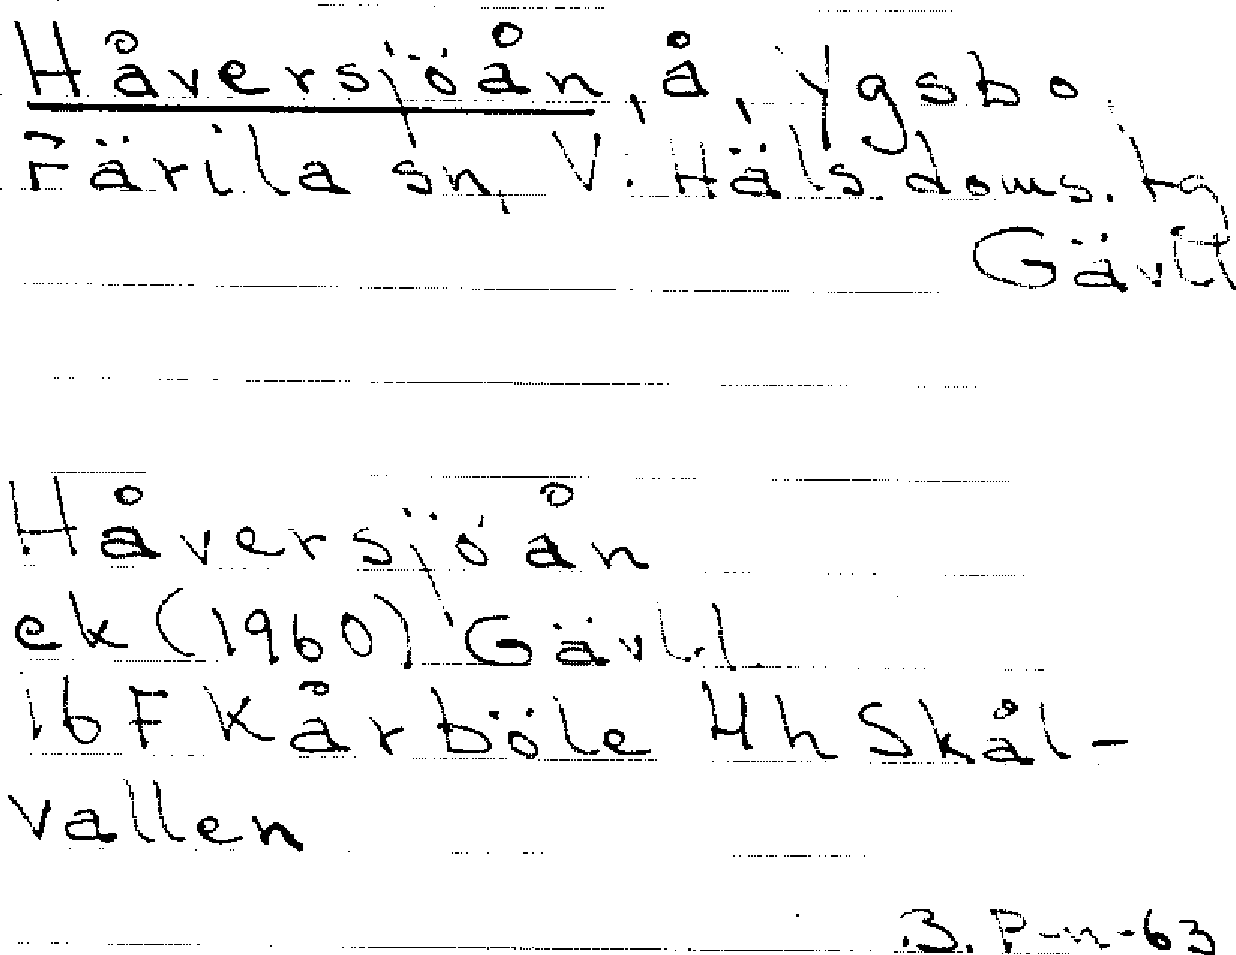 Håversjöån, å, Ygsbo,
Färila sn, V. Häls. doms. tg
Gävll
Håversjöån
ek (1960) Gävl.l.
16 F Kårböle 4h Skål-
vallen
B. P-n-63